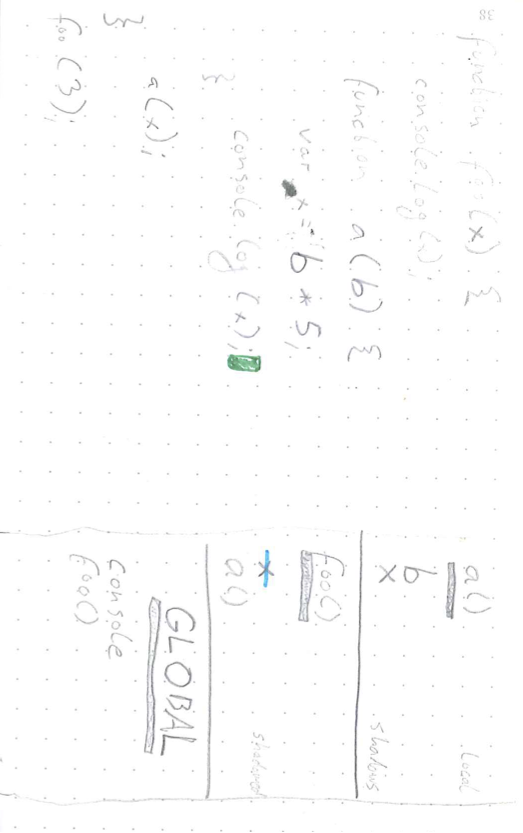 38
function foo(x) {
console.log(x);
function a(b) {
var x = b * 5;
console.log(x);
}
a(x);
}
foo(3);
a() Local
b
x shadows
foo()
x shadowed
a()
GLOBAL
console
foo()